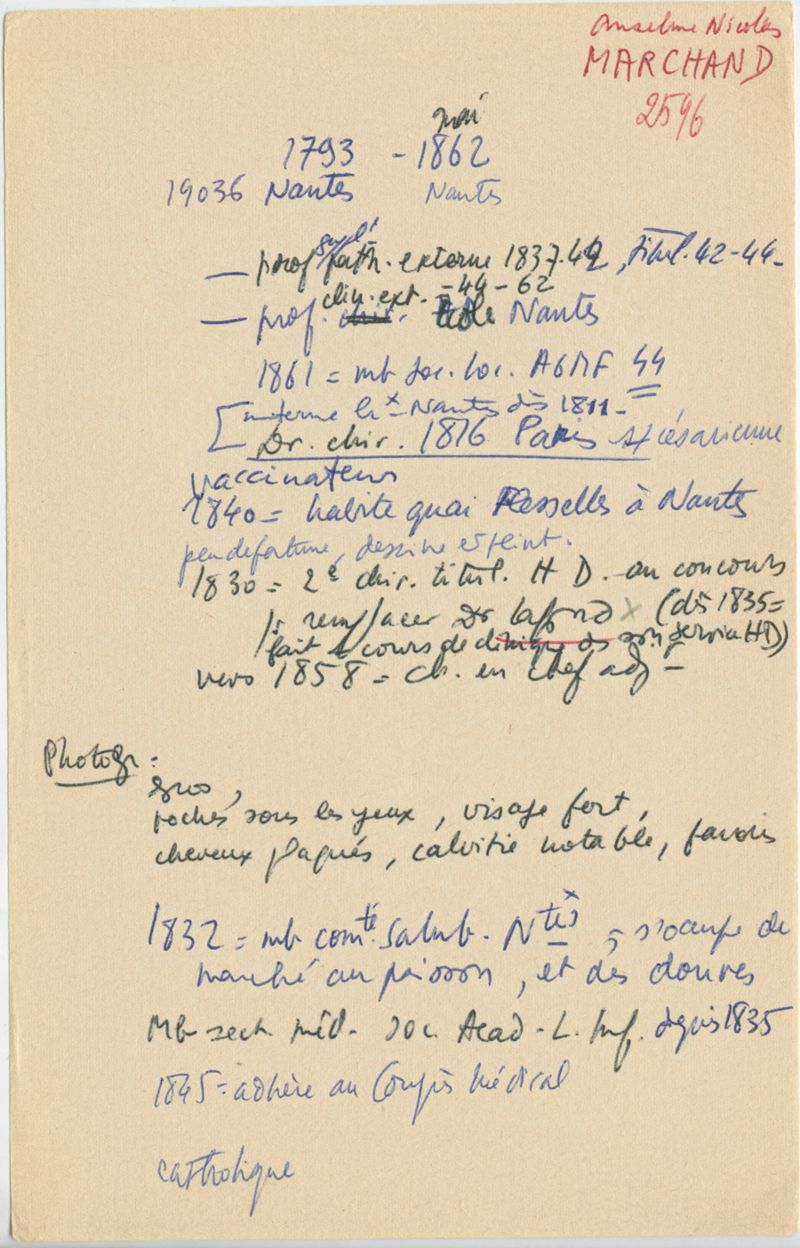 Anselme Nicolas
MARCHAND
2596
mai
1793 - 1862
19036 Nantes Nantes
suplt
— prof path. externe 1837.42, titul. 42-44-
clin. ext. -44-62
— prof. chir. Ecole Nantes
1861 = mb soc. loc. AGMF 44
[interne hx Nantes dès 1811-
Dr. chir. 1816 Paris s/ césarienne
vaccinateur
1840 = habite quai Flesselles à Nantes
peu de fortune, dessine et peint.
1830 = 2e chir. titul. H D. au concours
pr remplacer Dr Lafond x (dès 1835 =
fait 1 cours de clinique ds son service HD)
vers 1858 = ch. en chef adj -
Photogr :
gros,
poches sous les yeux, visage fort,
cheveux plaqués, calvitie notable, favoris
1832 = mb comté. Salub. Ntes ; s'occupe de
marché au poisson, et des douves
Mb sect. méd. Soc. Acad - L. Inf. depuis 1835
1845 = adhère au Congrès Médical
catholique